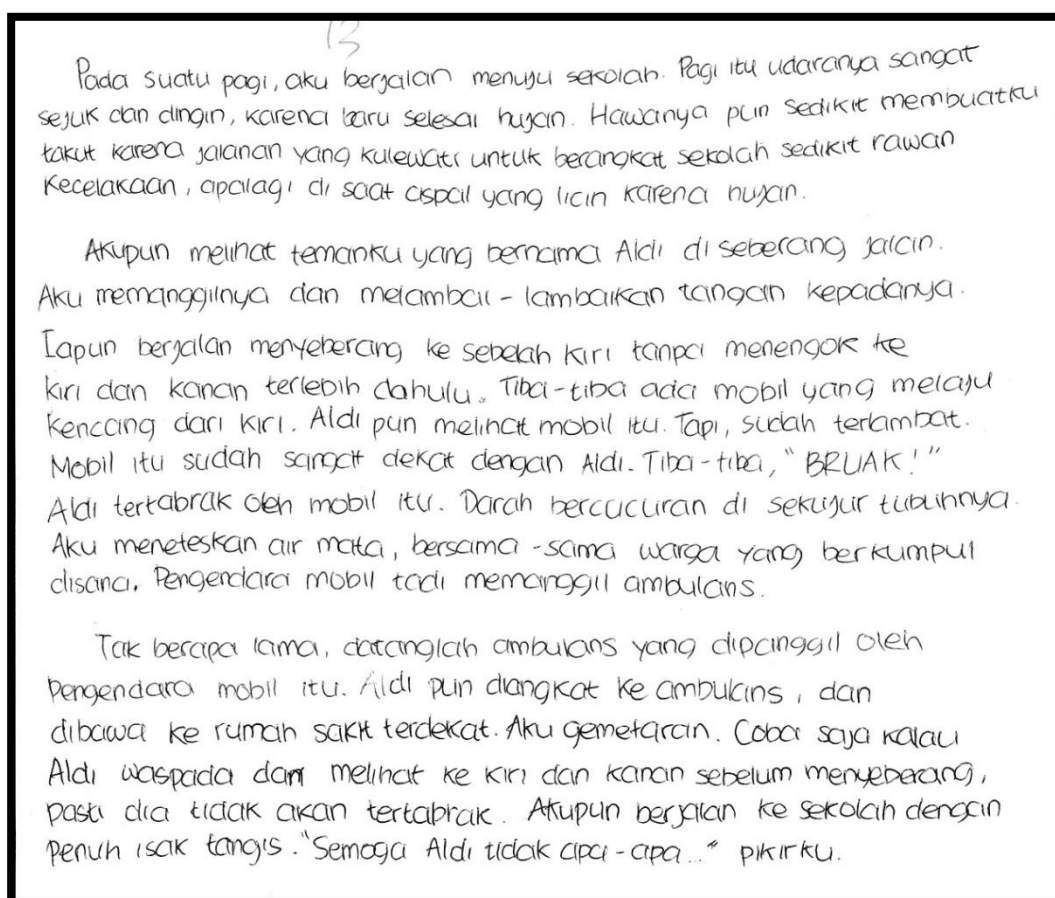 13
Pada suatu pagi, aku berjalan menuju sekolah. Pagi itu udaranya sangat
sejuk dan dingin, karena baru selesai hujan. Hawanya pun sedikit membuatku
takut karena jalanan yang kulewati untuk berangkat sekolah sedikit rawan
Kecelakaan, apalagi di saat aspal yang licin karena hujan.
Akupun melihat temanku yang bernama Aldi di seberang jalan.
Aku memanggilnya dan melambai-lambaikan tangan kepadanya.
Iapun berjalan menyeberang ke sebelah kiri tanpa menengok ke
kiri dan kanan terlebih dahulu. Tiba-tiba ada mobil yang melaju
kencang dari kiri. Aldi pun melihat mobil itu. Tapi, sudah terlambat.
Mobil itu sudah sangat dekat dengan Aldi. Tiba-tiba, "BRUAK!"
Aldi tertabrak oleh mobil itu. Darah bercucuran di sekujur tubuhnya.
Aku meneteskan air mata, bersama-sama warga yang berkumpul
disana. Pengendara mobil tadi memanggil ambulans.
Tak berapa lama, datanglah ambulans yang dipanggil oleh
Pengendara mobil itu. Aldi pun diangkat ke ambulans, dan
dibawa ke rumah sakit terdekat. Aku gemetaran. Coba saja kalau
Aldi waspada dan melihat ke kiri dan kanan sebelum menyeberang,
pasti dia tidak akan tertabrak. Akupun berjalan ke sekolah dengan
Penuh isak tangis. "Semoga Aldi tidak apa-apa..." pikirku.